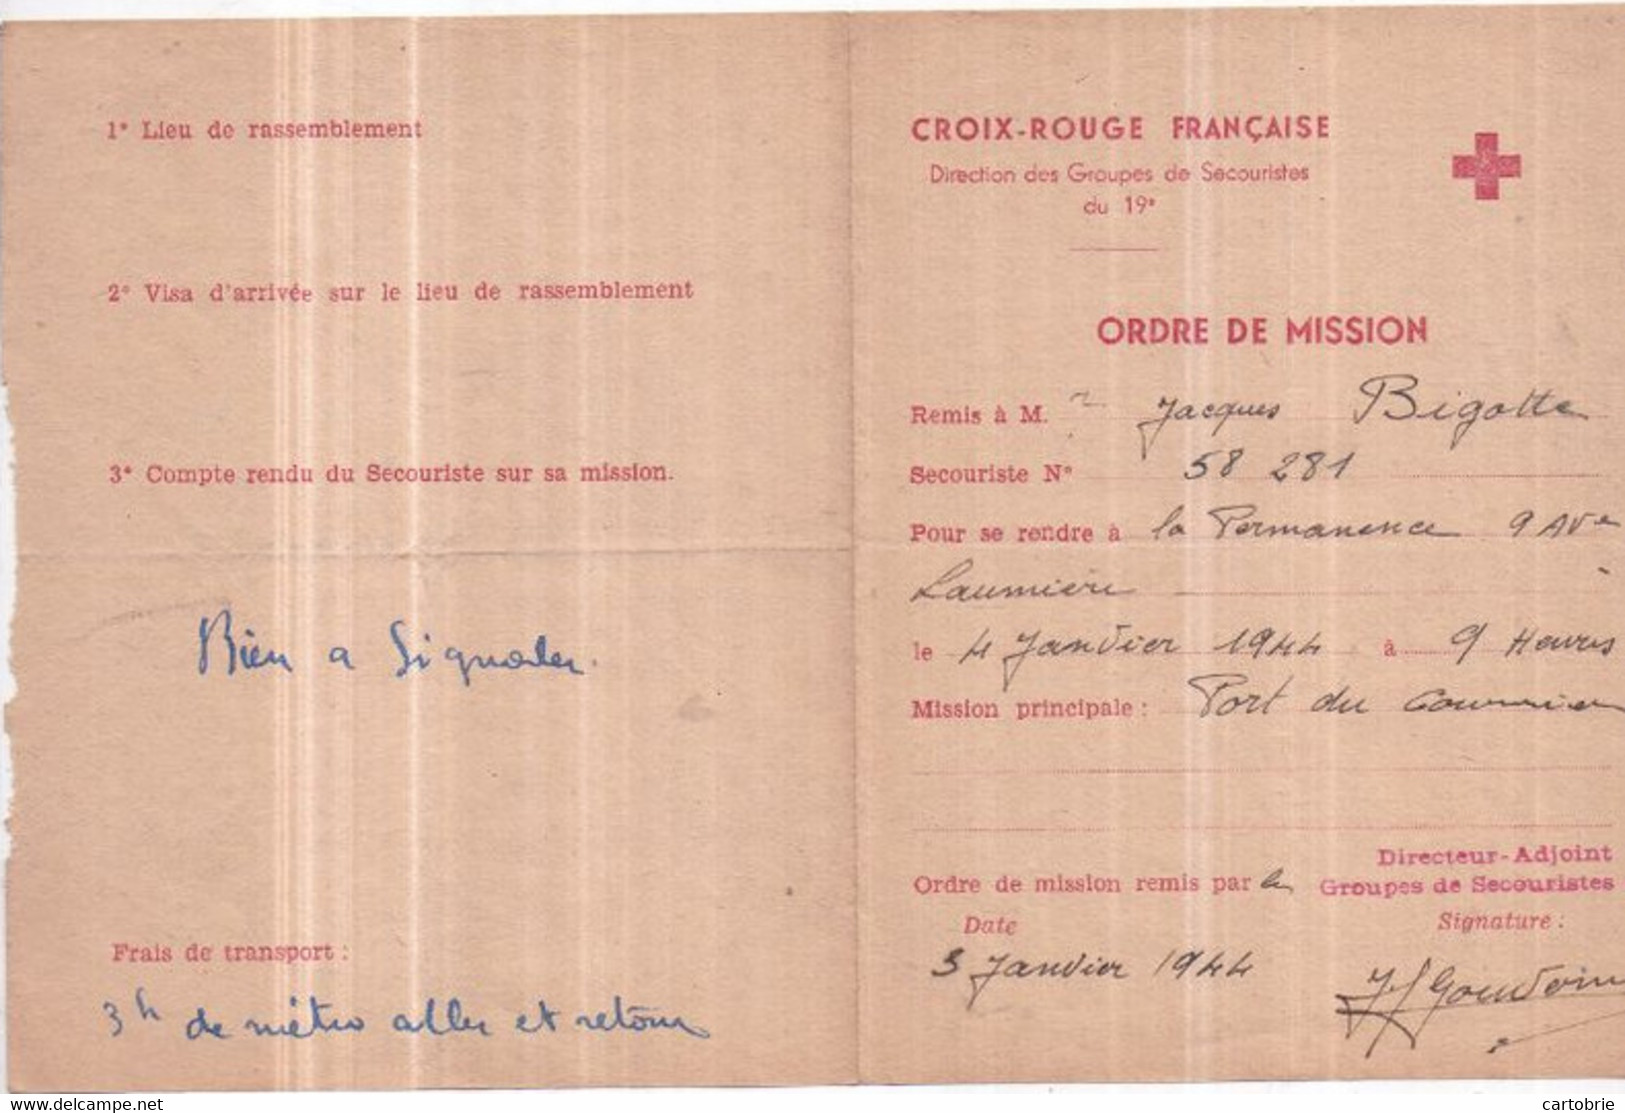 1° Lieu de rassemblement
2° Visa d'arrivée sur le lieu de rassemblement
3° Compte rendu du Secouriste sur sa mission.
Bien a Signaler.
Frais de transport :
3 h de métro aller et retour
CROIX-ROUGE FRANÇAISE
Direction des Groupes de Secouristes
du 19e
ORDRE DE MISSION
Remis à M. r Jacques Bigotte
Secouriste N° 58 281
Pour se rendre à la Permanence 9 Ave
Laumière
le 4 Janvier 1944 à 9 Heures
Mission principale : Port du Courrier
Directeur-Adjoint
Ordre de mission remis par le Groupes de Secouristes
Date Signature :
3 Janvier 1944
cartobrie
www.delcampe.net